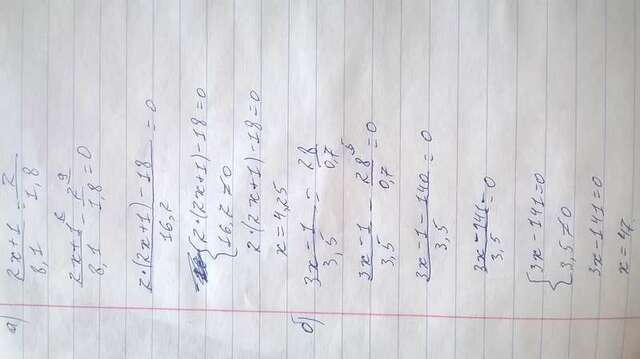 а) (2x+1)/8,1 = 2/1,8
(2x+1)²/8,1 - 2⁹/1,8 = 0
(2·(2x+1)-18)/16,2 = 0
{2·(2x+1)-18=0
16,2≠0
2(2x+1)-18=0
x=4,25
б) (3x-1)/3,5 = 28/0,7
(3x-1)/3,5 - 28⁵/0,7 = 0
(3x-1-140)/3,5 = 0
(3x-141)/3,5 = 0
{3x-141=0
3,5≠0
3x-141=0
x=47